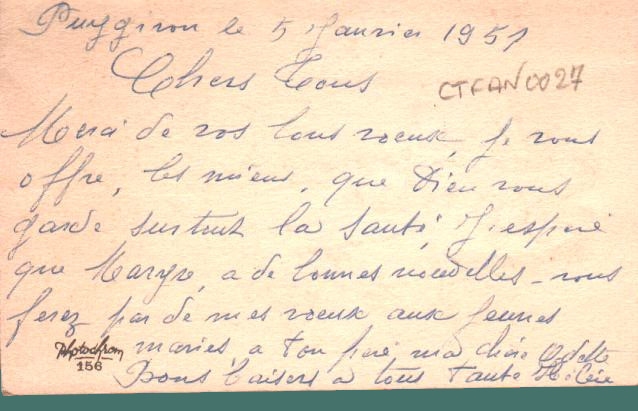 Puygiron le 5 Janvier 1951
Chers Tous
CTFAN0027
Merci de vos bons voeux, je vous
offre, les miens, que Dieu vous
garde surtout la santé, J'espère
que Maryse, a de bonnes nouvelles - vous
ferez par de mes voeux aux jeunes
mariés, a ton père ma chère Odette
Bons baisers a tous Tante Hélène
Photochrom
156